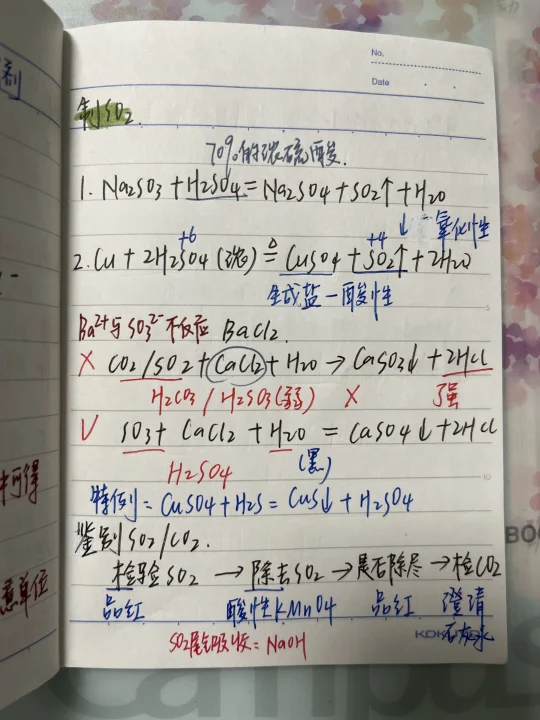 剂
No.
Date
制SO2.
70%的浓硫酸.
1. Na2SO3 + H2SO4 = Na2SO4 + SO2↑ + H2O
+6 +4 ↓ - 氧化性
2. Cu + 2H2SO4 (浓) ≜ CuSO4 + SO2↑ + 2H2O
生成盐-酸性
Ba2+与SO32-不反应 BaCl2.
X CO2/SO2 + CaCl2 + H2O → CaSO3↓ + 2HCl
H2CO3 / H2SO3(弱) X 强
V SO3 + CaCl2 + H2O = CaSO4↓ + 2HCl
H2SO4 (黑)
特例 = CuSO4 + H2S = CuS↓ + H2SO4
鉴别SO2/CO2.
可得
检验SO2 → 除去SO2 → 是否除尽 → 检CO2
意单位
品红 酸性KMnO4 品红 澄清
石灰水
SO2尾气吸收 = NaOH
Campus